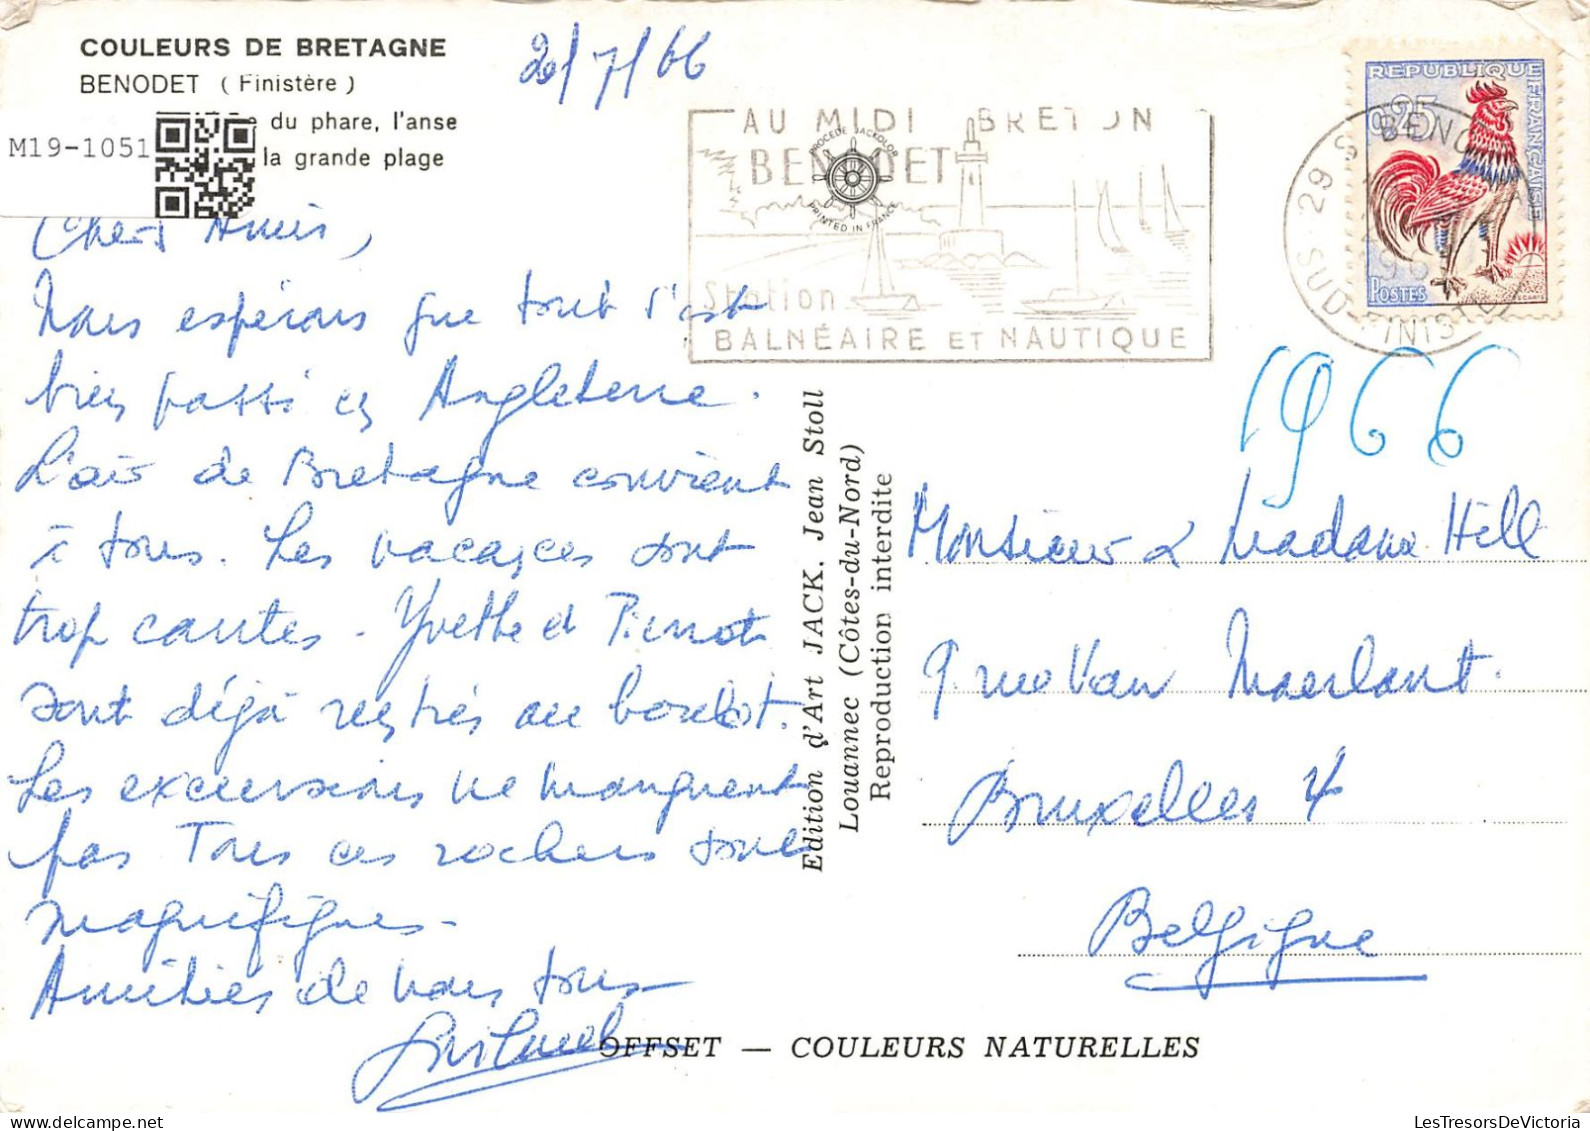 COULEURS DE BRETAGNE
BENODET (Finistère)
du phare, l'anse
M19-1051
la grande plage
2/7/66
AU MIDI BRETON
BENODET
PROCÉDÉ JACKOLOR
PRINTED IN FRANCE
Station
BALNÉAIRE ET NAUTIQUE
REPUBLIQUE FRANÇAISE
0,25
POSTES
29 S
SUD-FINISTE
1966
Chers Amis,
Nous espérons que tout s'est
bien passé en Angleterre.
L'air de Bretagne convient
à tous. Les vacances sont
trop courtes. Yvette et Pierrot
sont déjà rentrés au boulot.
Les excursions ne manquent
pas Tous ces rochers sont
magnifiques.
Amitiés de nous tous
Edition d'Art JACK. Jean Stoll
Louannec (Côtes-du-Nord)
Reproduction interdite
Monsieur & Madame Hill
9 rue Van Maerlant.
Bruxelles 4
Belgique
OFFSET — COULEURS NATURELLES
LesTresorsDeVictoria